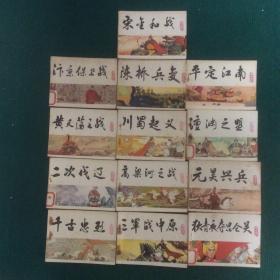 宋金和战
汴京保卫战
陈桥兵变
平定江南
黄天荡之战
川蜀起义
澶渊之盟
二次伐辽
高梁河之战
元昊兴兵
千古忠烈
三军战中原
狄青夜夺昆仑关